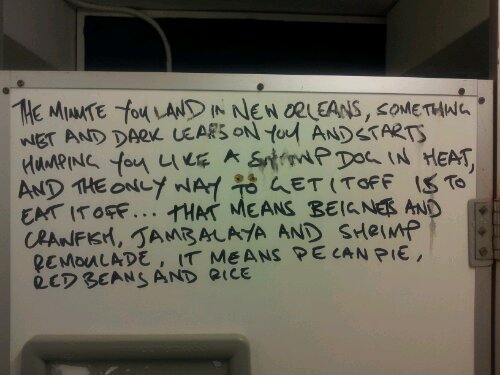 THE MINUTE YOU LAND IN NEW ORLEANS, SOMETHING
WET AND DARK LEAPS ON YOU AND STARTS
HUMPING YOU LIKE A SWAMP DOG IN HEAT,
AND THE ONLY WAY TO GET IT OFF IS TO
EAT IT OFF... THAT MEANS BEIGNES AND
CRAWFISH, JAMBALAYA AND SHRIMP
REMOULADE, IT MEANS PECAN PIE,
RED BEANS AND RICE